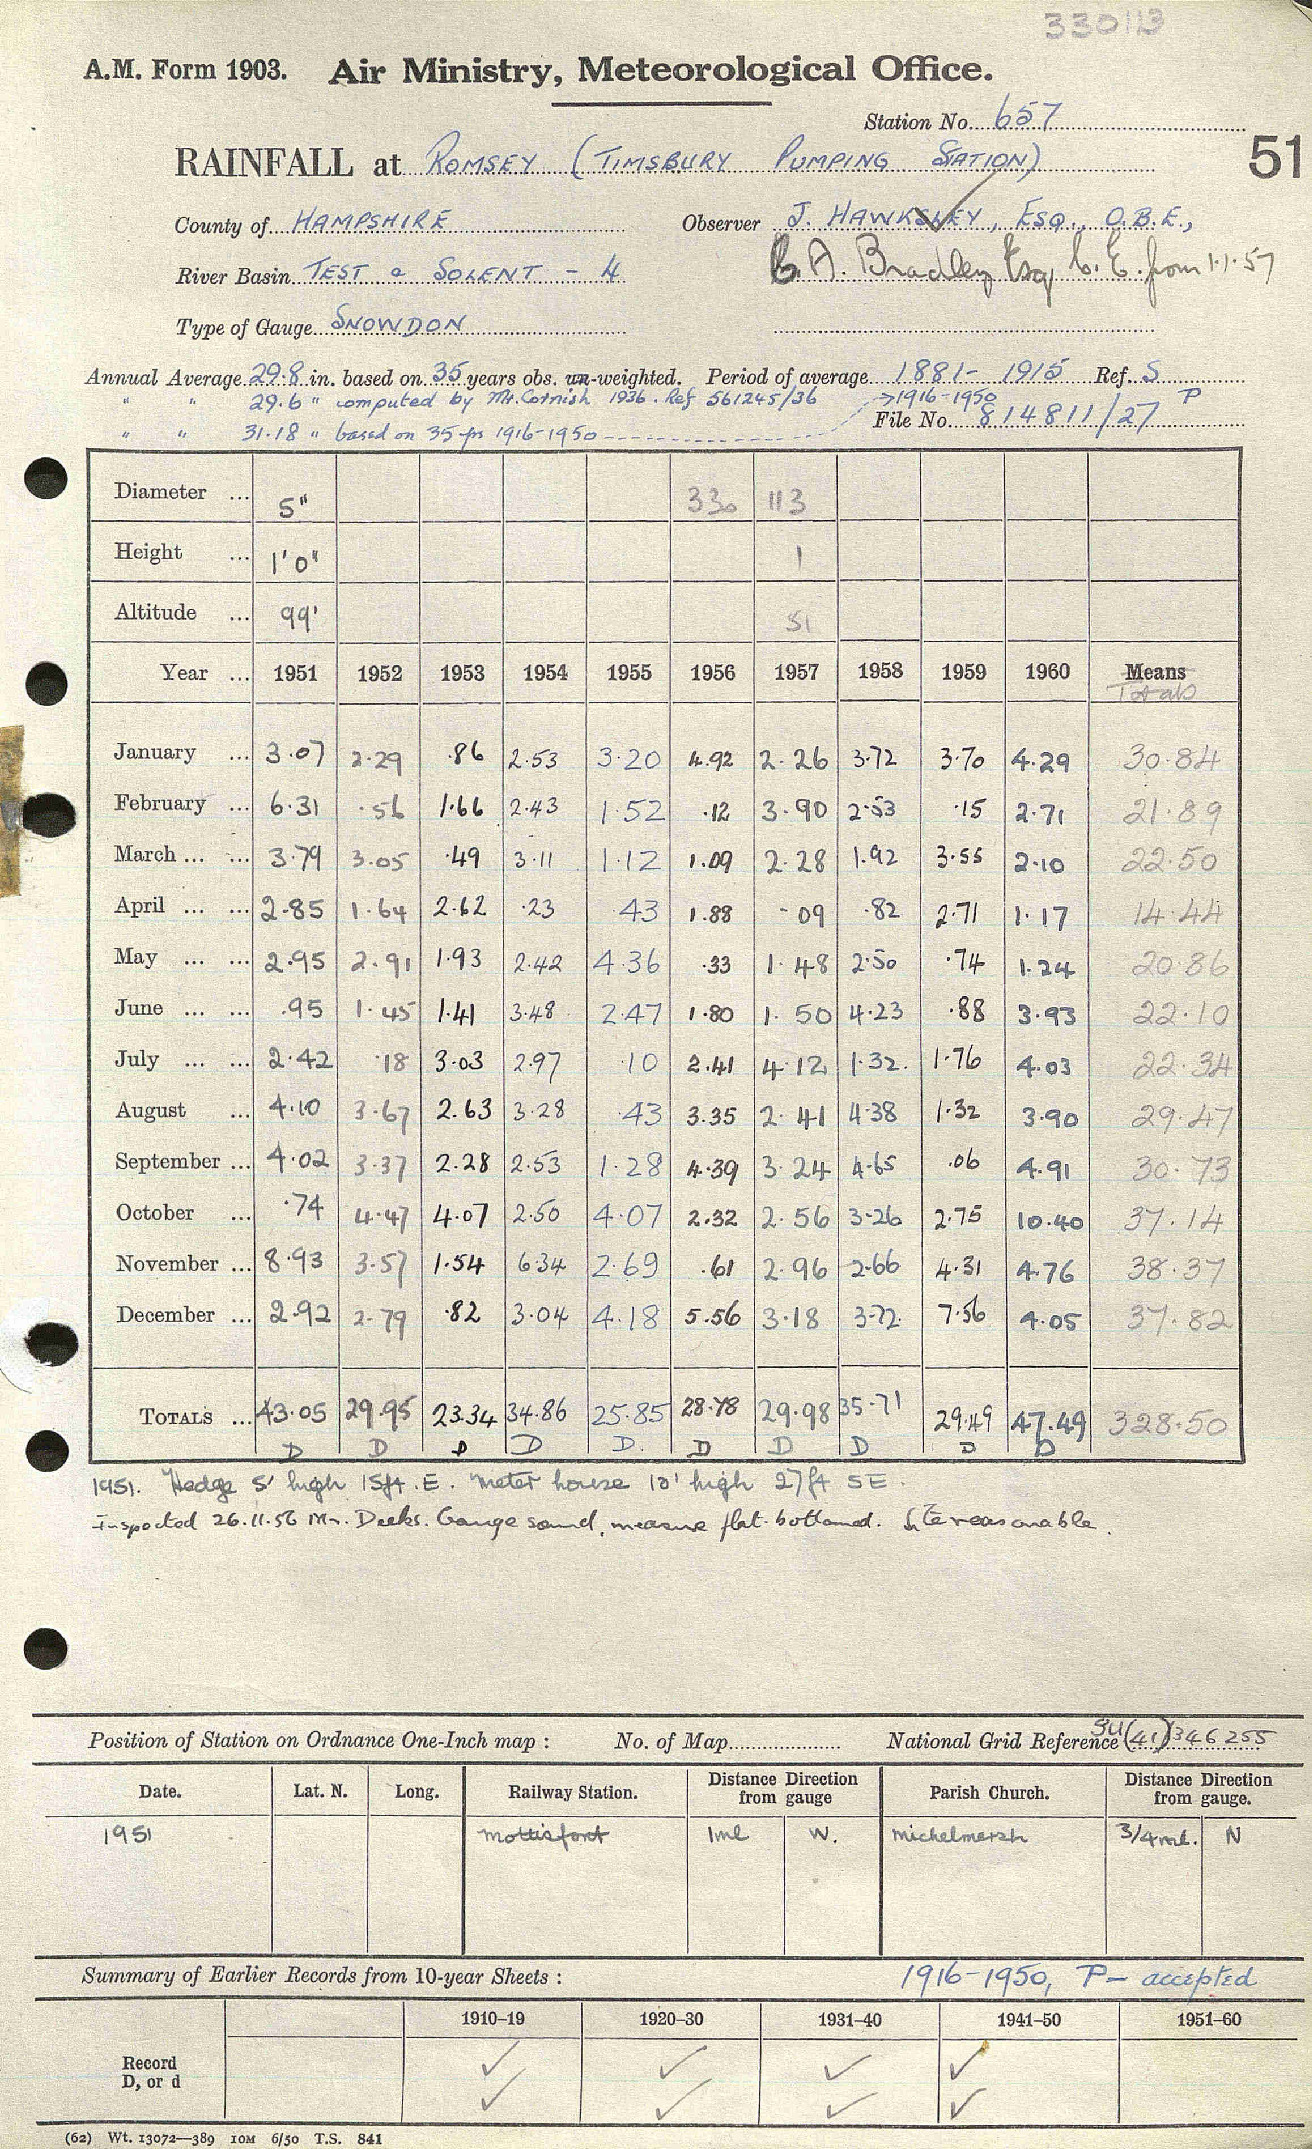 330113
A.M. Form 1903. Air Ministry, Meteorological Office.
Station No. 657
RAINFALL at ROMSEY (TIMSBURY PUMPING STATION) 51
County of HAMPSHIRE Observer J. HAWKSLEY, ESQ., O.B.E.,
River Basin TEST & SOLENT - 4 C. A. Bradley Esq C.E. from 1.1.57
Type of Gauge SNOWDON
Annual Average 29.8 in. based on 35 years obs. un-weighted. Period of average 1881-1915 Ref. S
" " 29.6 " computed by Mr. Cornish 1936. Ref 561245/36 →1916-1950 P
File No. 814811/27
" " 31.18 " based on 35 yrs 1916-1950
Diameter ... 5" 330 113
Height ... 1'0" 1
Altitude ... 99' 51
Year ... 1951 1952 1953 1954 1955 1956 1957 1958 1959 1960 Means
Totals
January ... 3.07 2.29 .86 2.53 3.20 4.92 2.26 3.72 3.70 4.29 30.84
February ... 6.31 .56 1.66 2.43 1.52 .12 3.90 2.53 .15 2.71 21.89
March ... ... 3.79 3.05 .49 3.11 1.12 1.09 2.28 1.92 3.55 2.10 22.50
April ... ... 2.85 1.64 2.62 .23 .43 1.88 .09 .82 2.71 1.17 14.44
May ... ... 2.95 2.91 1.93 2.42 4.36 .33 1.48 2.50 .74 1.24 20.86
June ... ... .95 1.45 1.41 3.48 2.47 1.80 1.50 4.23 .88 3.93 22.10
July ... ... 2.42 .18 3.03 2.97 .10 2.41 4.12 1.32 1.76 4.03 22.34
August ... 4.10 3.67 2.63 3.28 .43 3.35 2.41 4.38 1.32 3.90 29.47
September ... 4.02 3.37 2.28 2.53 1.28 4.39 3.24 4.65 .06 4.91 30.73
October ... .74 4.47 4.07 2.50 4.07 2.32 2.56 3.26 2.75 10.40 37.14
November ... 8.93 3.57 1.54 6.34 2.69 .61 2.96 2.66 4.31 4.76 38.37
December ... 2.92 2.79 .82 3.04 4.18 5.56 3.18 3.72 7.56 4.05 37.82
TOTALS ... 43.05 29.95 23.34 34.86 25.85 28.78 29.98 35.71 29.49 47.49 328.50
D D D D D. D D D D D
1951. Hedge 5' high 15ft. E. Meter house 10' high 27ft SE.
Inspected 26.11.56 Mr. Deeks. Gauge sound, measure flat-bottomed. Site reasonable.
Position of Station on Ordnance One-Inch map : No. of Map National Grid Reference SU(41)346255
Date. Lat. N. Long. Railway Station. Distance Direction from gauge Parish Church. Distance Direction from gauge.
1951 Mottisfont 1ml W. Michelmersh 3/4ml. N
Summary of Earlier Records from 10-year Sheets : 1916-1950, P- accepted
1910-19 1920-30 1931-40 1941-50 1951-60
Record ✓ ✓ ✓ ✓
D, or d ✓ ✓ ✓ ✓
(62) Wt. 13072—389 10M 6/50 T.S. 841